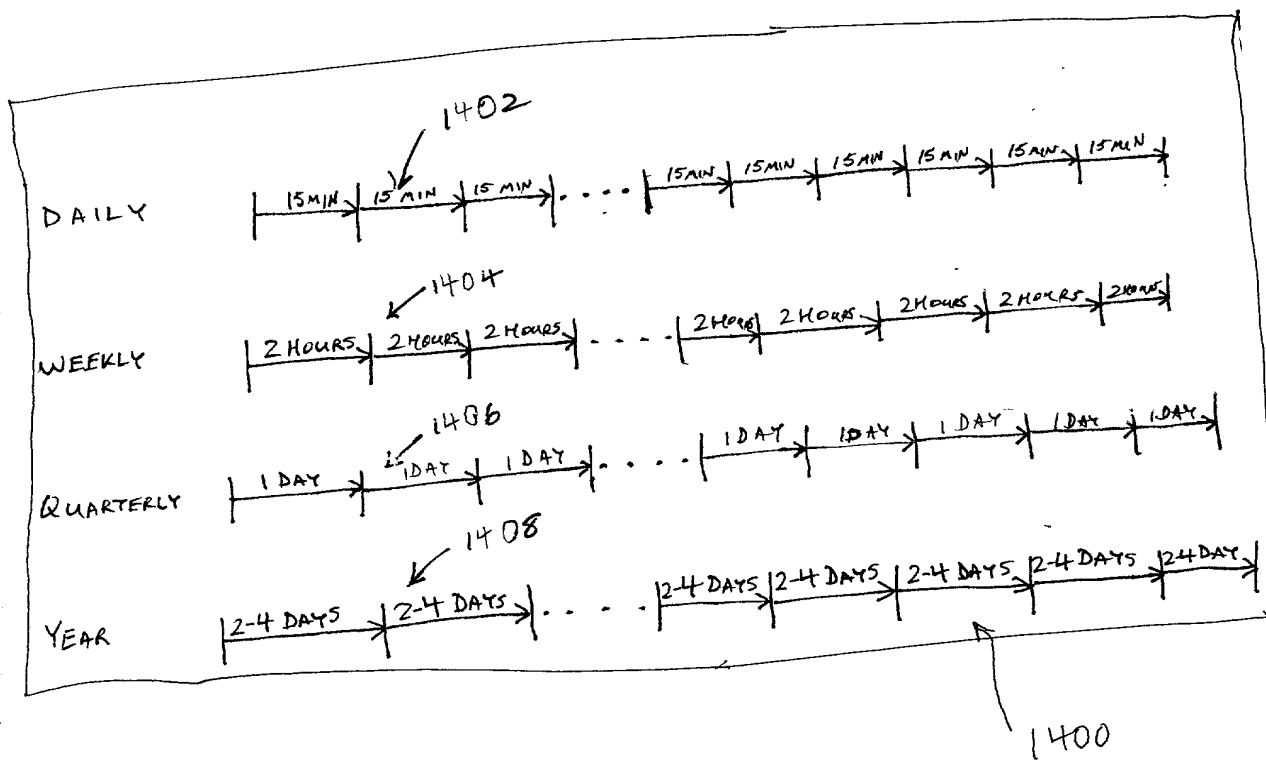 1402
DAILY 15 MIN 15 MIN 15 MIN . . . . 15 MIN 15 MIN 15 MIN 15 MIN 15 MIN 15 MIN
1404
WEEKLY 2 HOURS 2 HOURS 2 HOURS . . . . 2 HOURS 2 HOURS 2 HOURS 2 HOURS 2 HOURS
1406
QUARTERLY 1 DAY 1 DAY 1 DAY . . . . 1 DAY 1 DAY 1 DAY 1 DAY 1 DAY
1408
YEAR 2-4 DAYS 2-4 DAYS . . . . 2-4 DAYS 2-4 DAYS 2-4 DAYS 2-4 DAYS 2-4 DAY
1400